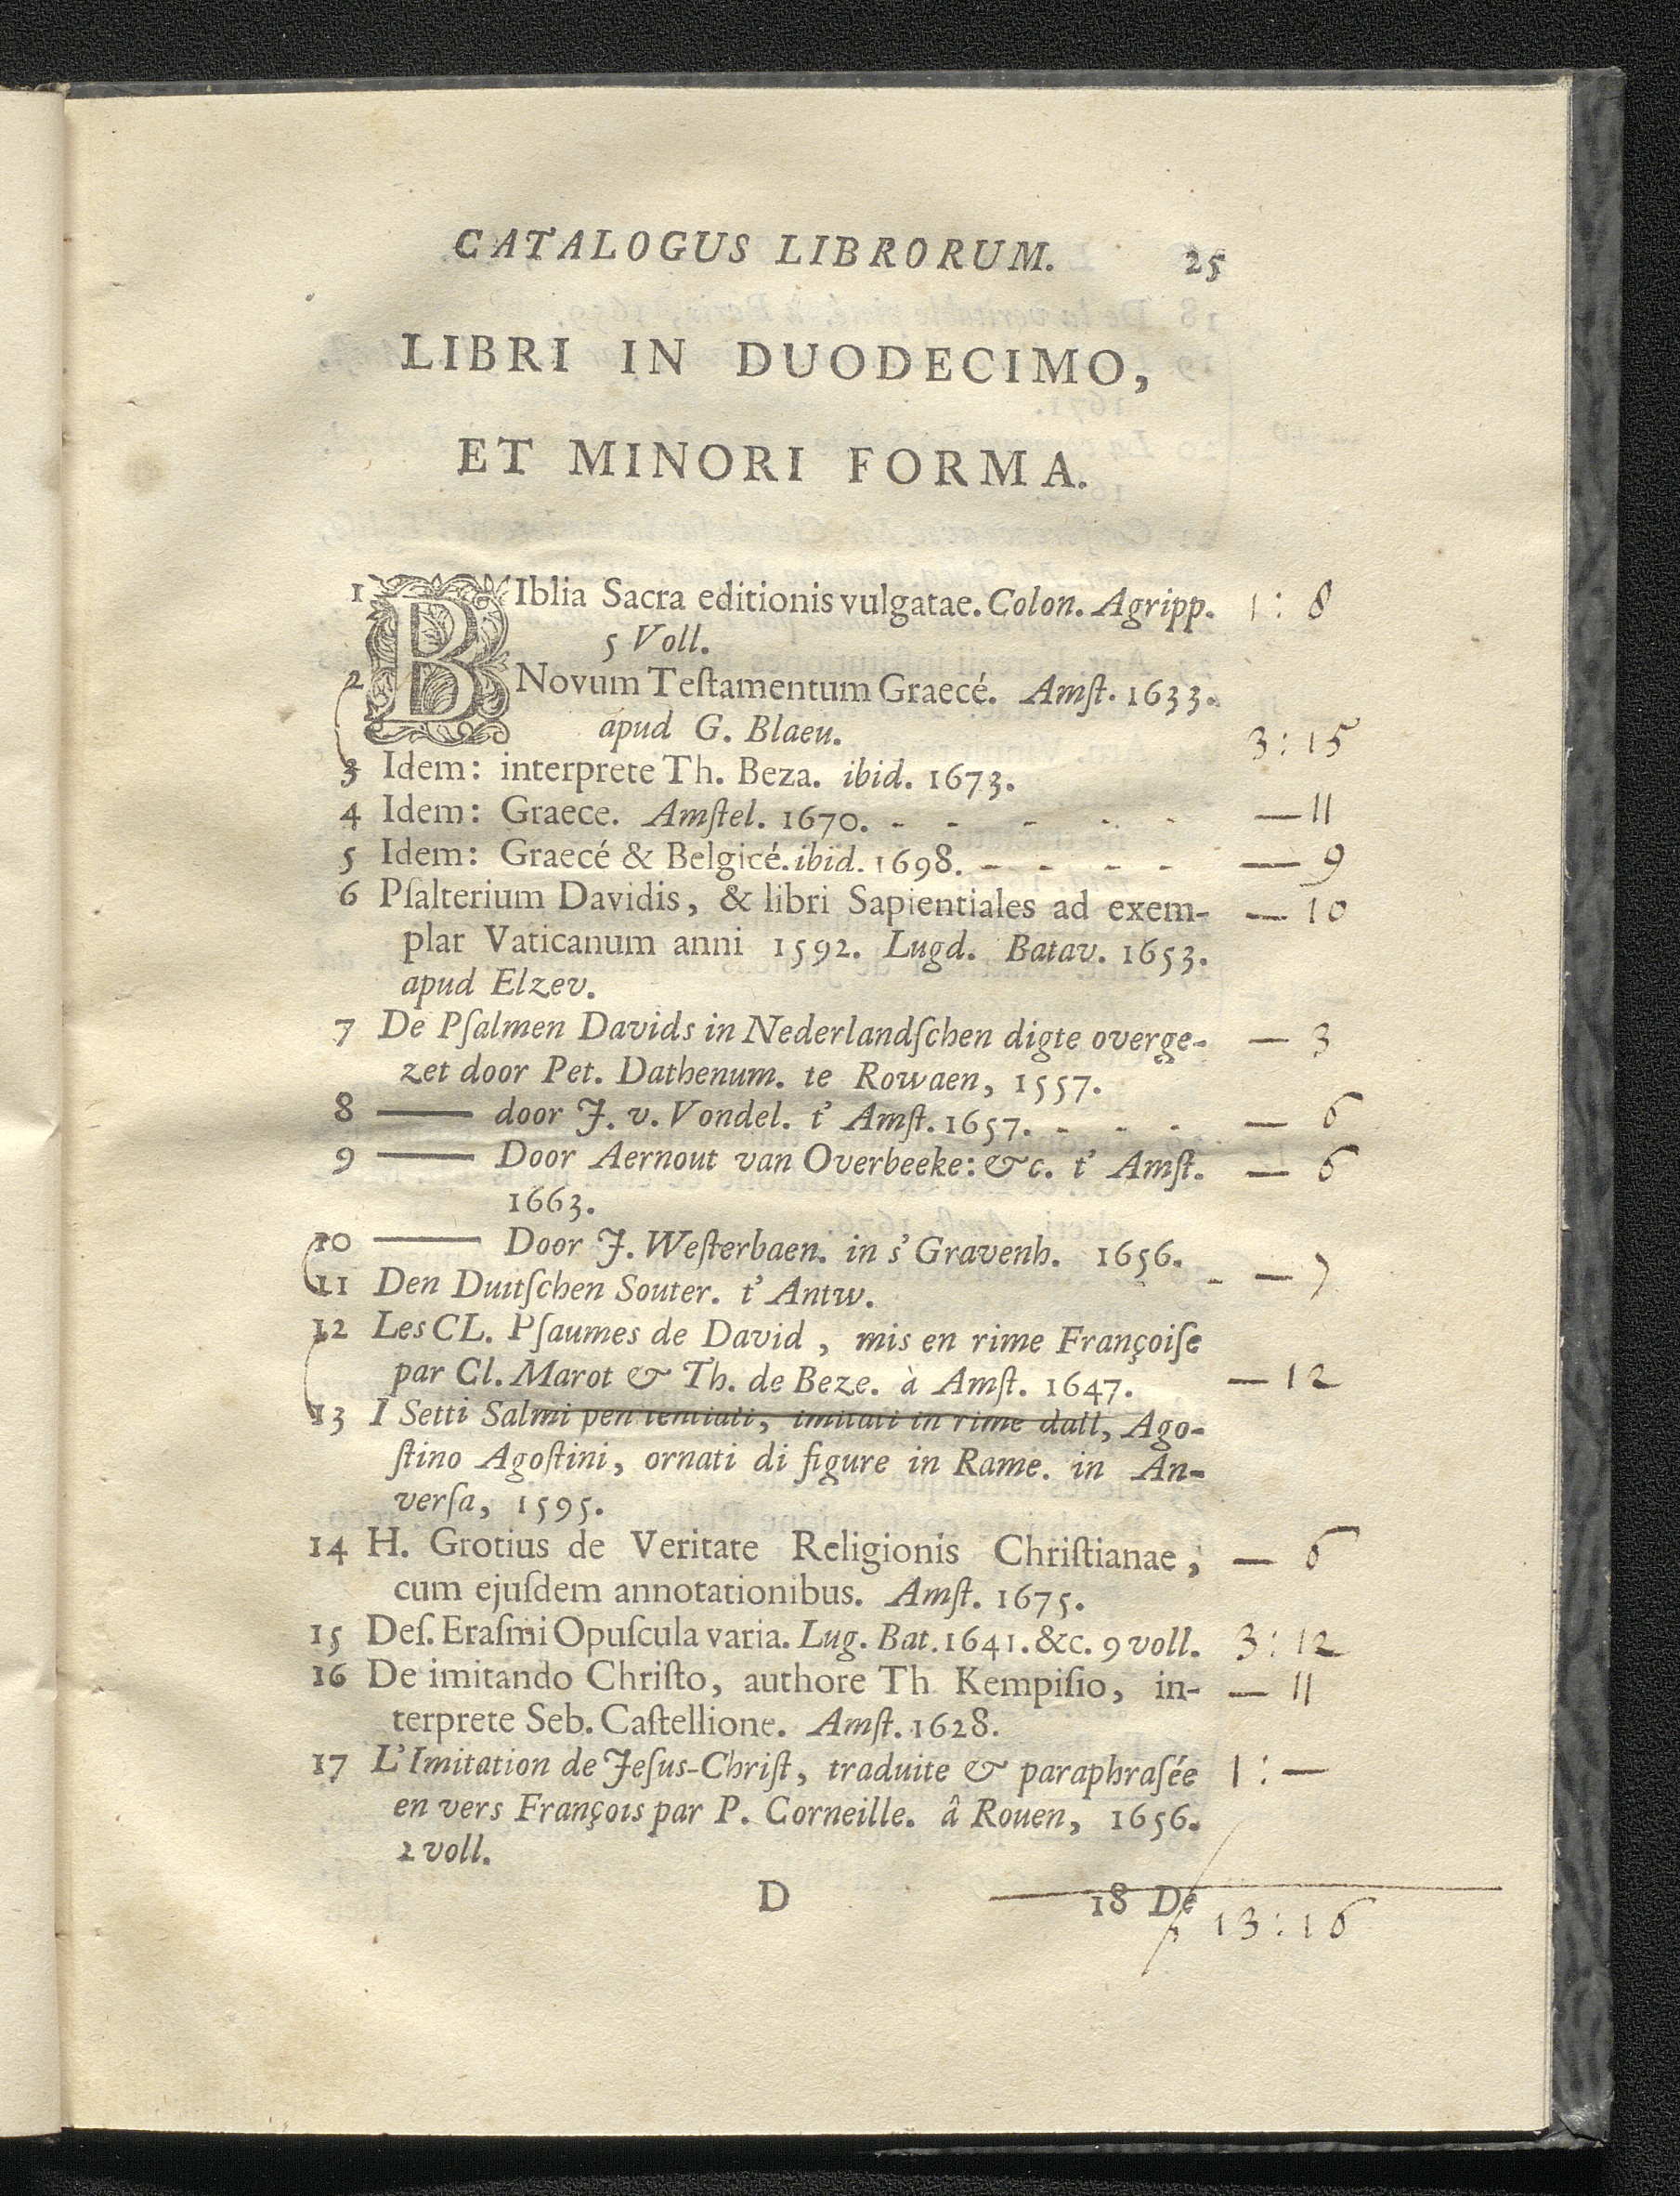 CATALOGUS LIBRORUM. 25
LIBRI IN DUODECIMO,
ET MINORI FORMA.
1 BIblia Sacra editionis vulgatae. Colon. Agripp. 1 : 8
5 Voll.
2 Novum Teſtamentum Graecé. Amſt. 1633.
apud G. Blaeu. 3 : 15
3 Idem: interprete Th. Beza. ibid. 1673.
4 Idem: Graece. Amſtel. 1670. - - - - - — 11
5 Idem: Graecé & Belgicé. ibid. 1698. - - - - — 9
6 Pſalterium Davidis, & libri Sapientiales ad exem- — 10
plar Vaticanum anni 1592. Lugd. Batav. 1653.
apud Elzev.
7 De Pſalmen Davids in Nederlandſchen digte overge- — 3
zet door Pet. Dathenum. te Rowaen, 1557.
8 —— door J. v. Vondel. t' Amſt. 1657. - - - — 6
9 —— Door Aernout van Overbeeke: &c. t' Amſt. — 6
1663.
10 —— Door J. Weſterbaen. in s' Gravenh. 1656.
- — 7
11 Den Duitſchen Souter. t' Antw.
12 Les CL. Pſaumes de David, mis en rime Françoiſe
par Cl. Marot & Th. de Beze. à Amſt. 1647. — 12
13 I Setti Salmi pen tentiati, imitati in rime dall, Ago-
ſtino Agoſtini, ornati di figure in Rame. in An-
verſa, 1595.
14 H. Grotius de Veritate Religionis Chriſtianae, — 6
cum ejuſdem annotationibus. Amſt. 1675.
15 Deſ. Eraſmi Opuſcula varia. Lug. Bat. 1641. &c. 9 voll. 3 : 12
16 De imitando Chriſto, authore Th Kempiſio, in- — 11
terprete Seb. Caſtellione. Amſt. 1628.
17 L'Imitation de Jeſus-Chriſt, traduite & paraphraſée 1 : —
en vers François par P. Corneille. â Rouen, 1656.
2 voll.
D 18 De
13 : 16